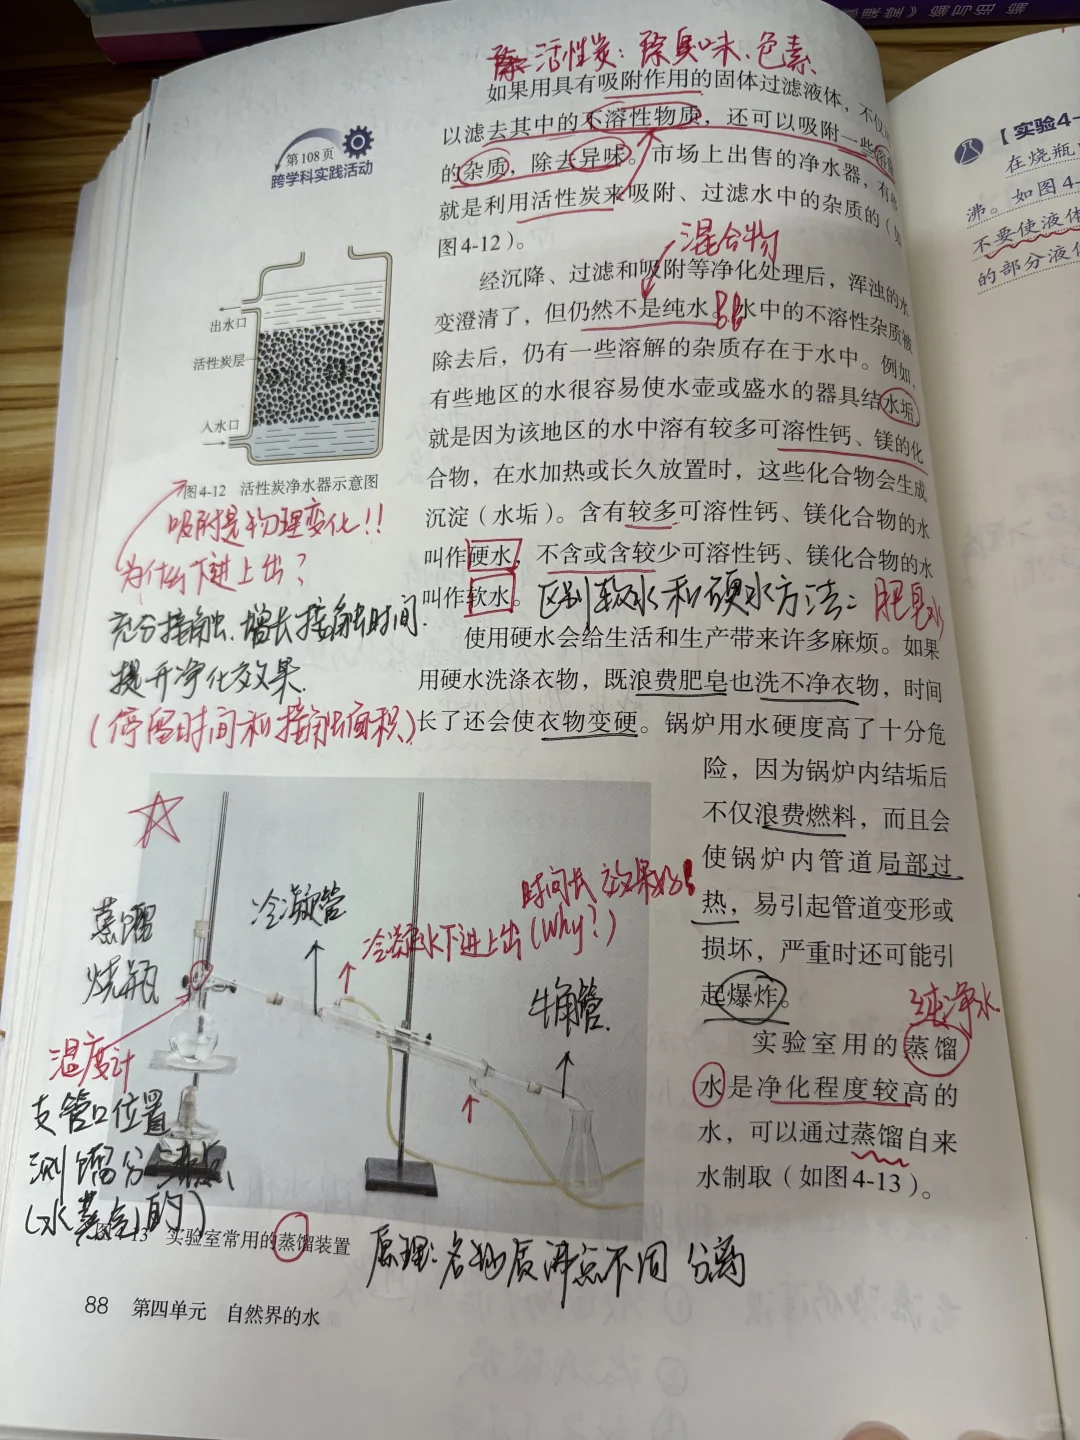 活性炭：除臭味、色素
如果用具有吸附作用的固体过滤液体，不仅
以滤去其中的不溶性物质，还可以吸附一些
的杂质，除去异味。市场上出售的净水器，有
就是利用活性炭来吸附、过滤水中的杂质的（如
图4-12）。
混合物
经沉降、过滤和吸附等净化处理后，浑浊的水
变澄清了，但仍然不是纯水。水中的不溶性杂质被
除去后，仍有一些溶解的杂质存在于水中。例如，
有些地区的水很容易使水壶或盛水的器具结水垢，
就是因为该地区的水中溶有较多可溶性钙、镁的化
合物，在水加热或长久放置时，这些化合物会生成
沉淀（水垢）。含有较多可溶性钙、镁化合物的水
叫作硬水，不含或含较少可溶性钙、镁化合物的水
叫作软水。
区别软水和硬水方法：肥皂水
使用硬水会给生活和生产带来许多麻烦。如果
用硬水洗涤衣物，既浪费肥皂也洗不净衣物，时间
长了还会使衣物变硬。锅炉用水硬度高了十分危
险，因为锅炉内结垢后
不仅浪费燃料，而且会
使锅炉内管道局部过
热，易引起管道变形或
损坏，严重时还可能引
起爆炸。
纯净水
实验室用的蒸馏
水是净化程度较高的
水，可以通过蒸馏自来
水制取（如图4-13）。
第108页
跨学科实践活动
出水口
活性炭层
入水口
图4-12 活性炭净水器示意图
吸附是物理变化！！
为什么下进上出？
充分接触、增长接触时间.
提升净化效果.
（停留时间和接触面积）
蒸馏
烧瓶
冷凝管
时间长 效果好
冷凝水下进上出（Why？）
牛角管.
温度计
支管口位置
测馏分沸点、
（水蒸气的）
13 实验室常用的蒸馏装置
原理：各物质沸点不同 分离
88 第四单元 自然界的水
【实验4-
在烧瓶
沸。如图4-
不要使液体
的部分液